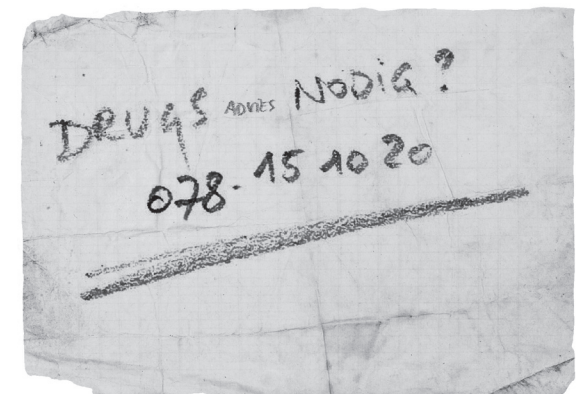 DRUGS ADVIES NODIG?
078-15 10 20